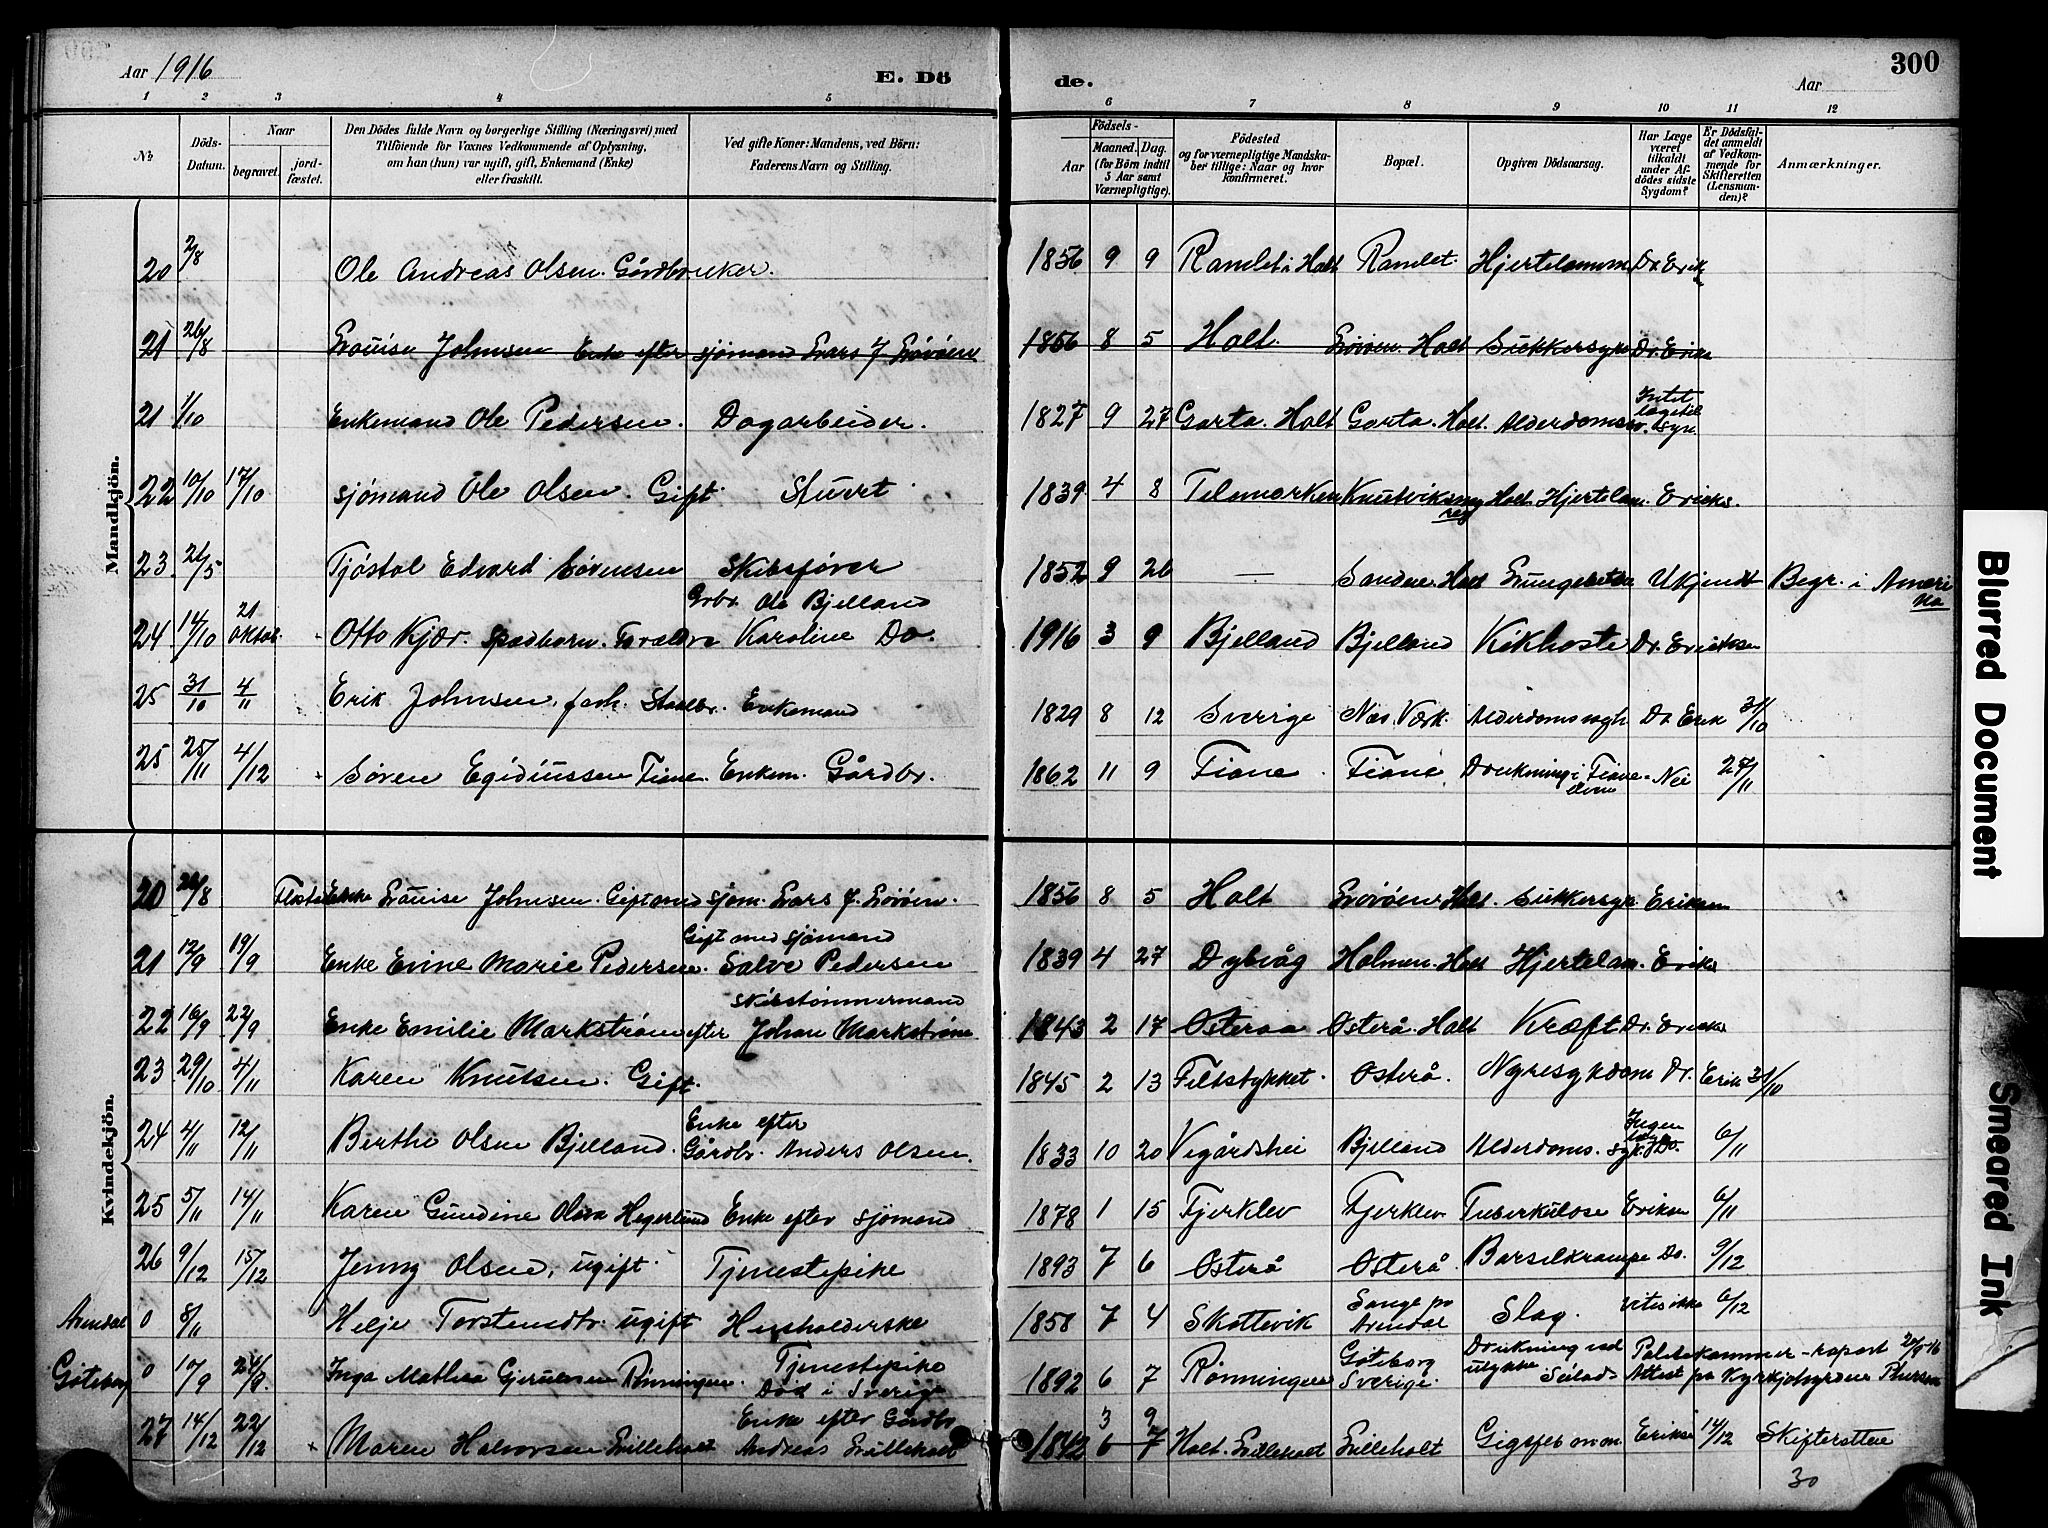 Aar 1916
E. Dö
de.
Aar
300
1 2 3 4 5 6 7 8 9 10 11 12
No.
Döds-Datum.
Naar
begravet.
jord-fæstet.
Den Dödes fulde Navn og borgerlige Stilling (Næringsvei) med
Tilföiende for Voxnes Vedkommende af Oplysning,
om han (hun) var ugift, gift, Enkemand (Enke)
eller fraskilt.
Ved gifte Koner: Mandens, ved Börn:
Faderens Navn og Stilling.
Födsels-
Aar
Maaned. Dag.
(for Börn indtil
5 Aar samt
Værnepligtige).
Födested
og for værnepligtige Mandska-
ber tillige: Naar og hvor
konfirmeret.
Bopæl.
Opgiven Dödsaarsag.
Har Læge
været
tilkaldt
under Af-
dödes sidste
Sygdom?
Er Dödsfal-
det anmeldt
af Vedkom-
mende for
Skifteretten
(Lensman-
den)?
Anmærkninger.
Mandkjön.
20 2/8 Ole Andreas Olsen. Gårdbruker. 1856 9 9 Ramlet i Holt Ramlet Hjertelamm Dr Erik
21 26/8 Lovise Johnsen Enke efter sjømand Lars J Lövöen 1856 8 5 Holt. Lövöen. Holt Sukkersyke Dr. Eriks
21 1/10 Enkemand Ole Pedersen. Dagarbeider. 1827 9 27 Garta. Holt Garta. Holt Alderdomssv. Intet lægetilsyn.
22 10/10 17/10 sjømand Ole Olsen. Gift. Stuert. 1839 4 8 Telemarken Holt. Hjertelam. Ericks.
23 26/5 Tjøstol Edvard Sørensen Skibsfører 1852 9 26 — Sandene Holt Ukjendt Begr. i Amerika
24 14/10 21 oktob. Otto Kjær. Spædbarn. Forældre Grbr. Ole Bjelland Karoline Do. 1916 3 9 Bjelland Bjelland Kikhoste Dr. Ericksen
25 31/10 4/11 Erik Johnsen, forh. Staalbr. Enkemand 1829 8 12 Sverige Næs Værk. Alderdomssvagh Dr Erik 31/10
25 25/11 4/12 Søren Egidiussen Fiane. Enkem. Gårdbr. 1862 11 9 Fiane Fiane Drukning i Fiane elven Nei 27/11
Kvindekjön.
20 26/8 Enke Lovise Johnsen. Gift med sjøm. Lars J. Lövöen. 1856 8 5 Holt Lövöen. Holt. Sukkersyk. Eriksen
21 12/9 19/9 Enke Evine Marie Pedersen. Gift med sjømand Salve Pedersen 1839 4 27 Dybvåg Holmen. Holt Hjertelam. Eriks
22 16/9 22/9 Enke Emilie Markstrøm efter skibstømmermand Johan Markstrøm 1843 2 17 Osteraa Osterå. Holt Kræft Dr. Ericks
23 29/10 4/11 Karen Knutsen. Gift. 1845 2 13 Feltstykket. Osterå. Nyresykdom Dr. Erik 31/10
24 4/11 12/11 Berthe Olsen Bjelland. Enke efter Gårdbr. Anders Olsen. 1833 10 20 Vegårdshei Bjelland Alderdoms. Ingen 6/11
25 5/11 14/11 Karen Gundine Olsva Hegerlund Enke efter sjømand 1878 1 15 Fjerklev Fjerklev Tuberkulose Eriksen 6/11
26 9/12 15/12 Jenny Olsen, ugift. Tjenestepike 1893 7 6 Osterå Osterå Barselkrampe Do. 9/12
Arendal 0 8/11 Helje Torstensdtr. ugift Husholderske 1858 7 4 Skottevik Sange pr Arendal Slag. Vites ikke 6/12
Göteborg 0 10/9 24/9. Inga Mathea Gjerulsen Rønningen. Tjenestepike Död i Sverige 1892 6 7 Rønningen Göteborg Sverige. Drukning ved ulykke
27 14/12 22/12 Maren Halvorsen Lilleholt Enke efter Gårdbr Andreas Lilleholt 1842 3 9 6 7 Holt. Lilleholt Lilleholt Eriks 14/12 Skifteretten
30
Blurred Document
Smeared Ink